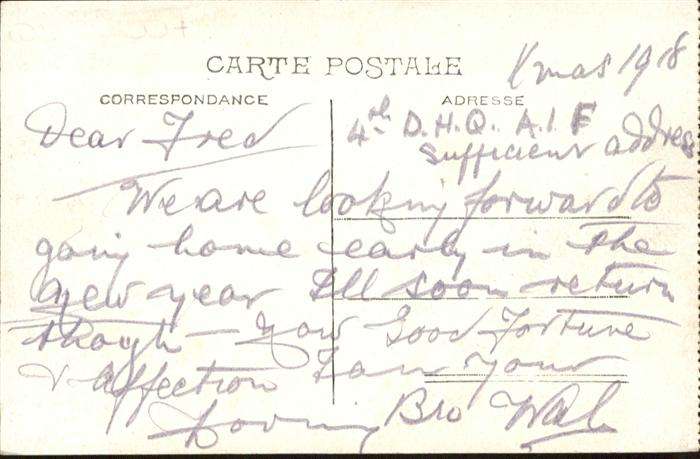 Xmas 1918
CARTE POSTALE
CORRESPONDANCE
ADRESSE
4th D.H.Q. A.I.F
Sufficient address
Dear Fred
We are looking forward to
going home early in the
New year I'll soon return
though - you Good Fortune
& affection I am your
loving Bro Wal